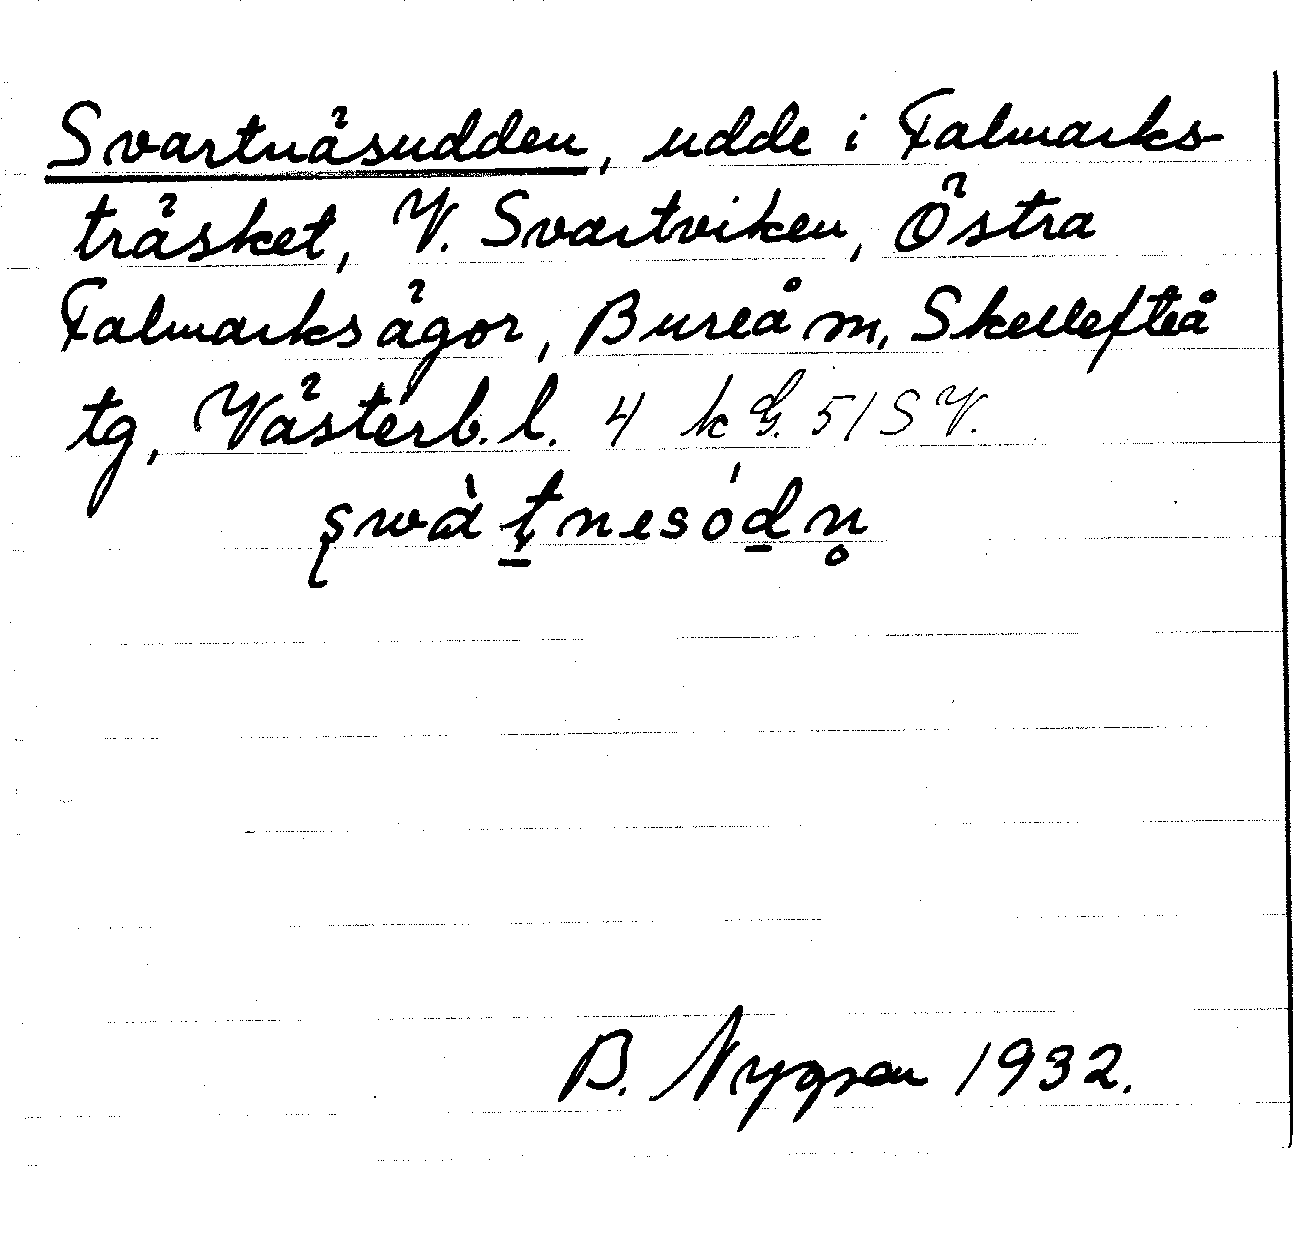 Svartnäsudden, udde i Falmarks-
träsket, V. Svartviken, Östra
Falmarks ägor, Bureå m, Skellefteå
tg, Västerb. l. 4 k G. 51 S V.
B. Nygren 1932.